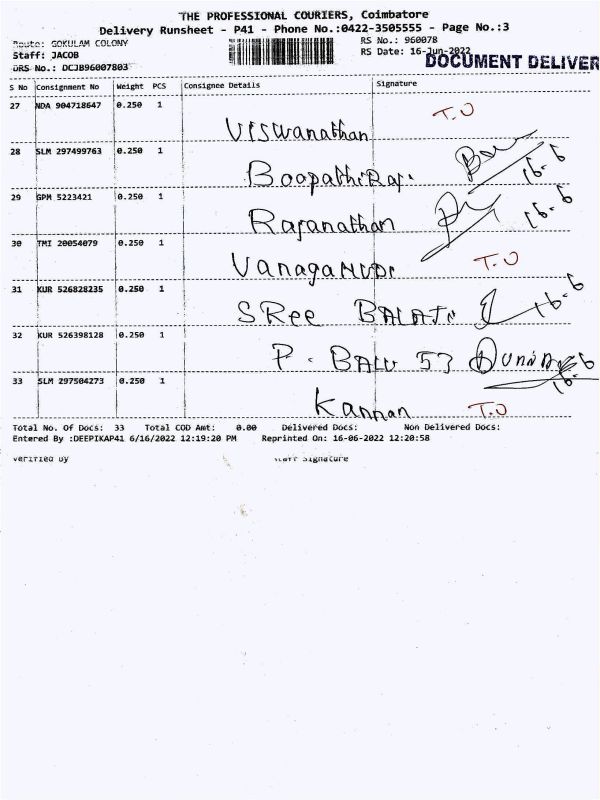 THE PROFESSIONAL COURIERS, Coimbatore
Delivery Runsheet - P41 - Phone No.:0422-3505555 - Page No.:3
Route: GOKULAM COLONY
RS No.: 960078
Staff: JACOB
RS Date: 16-Jun-2022
DRS No.: DCJB96007803
DOCUMENT DELIVER
S No Consignment No Weight PCS Consignee Details Signature
27 NDA 904718647 0.250 1
Viswanathan T.O
28 SLM 297499763 0.250 1
BoopathiRaj. 16-6
29 GPM 5223421 0.250 1
Rajanathan 16-6
30 TMI 20054079 0.250 1
T.O
31 KUR 526828235 0.250 1
SRee BALAJI 16-6
32 KUR 526398128 0.250 1
P. BALU 53 16-6
33 SLM 297504273 0.250 1
Kannan T.O
Total No. Of Docs: 33 Total COD Amt: 0.00 Delivered Docs: Non Delivered Docs:
Entered By :DEEPIKAP41 6/16/2022 12:19:20 PM Reprinted On: 16-06-2022 12:20:58
Verified By Staff Signature